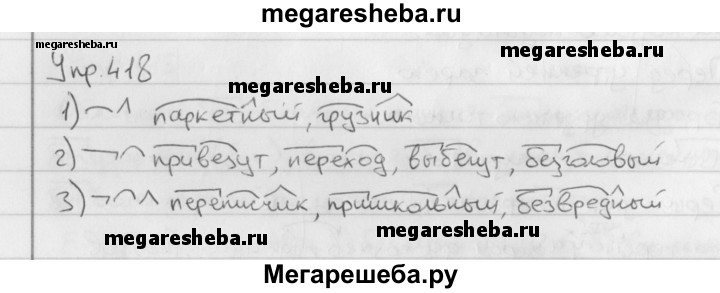 megaresheba.ru
megaresheba.ru
Упр. 418
megaresheba.ru
1) ¬∧ паркетный, грузчик
2) ¬⌒ привезут, переход, выбегут, безголовый
3) ¬⌒∧ переписчик, пришкольный, безвредный
megaresheba.ru megaresheba.ru
Мегарешеба.ру